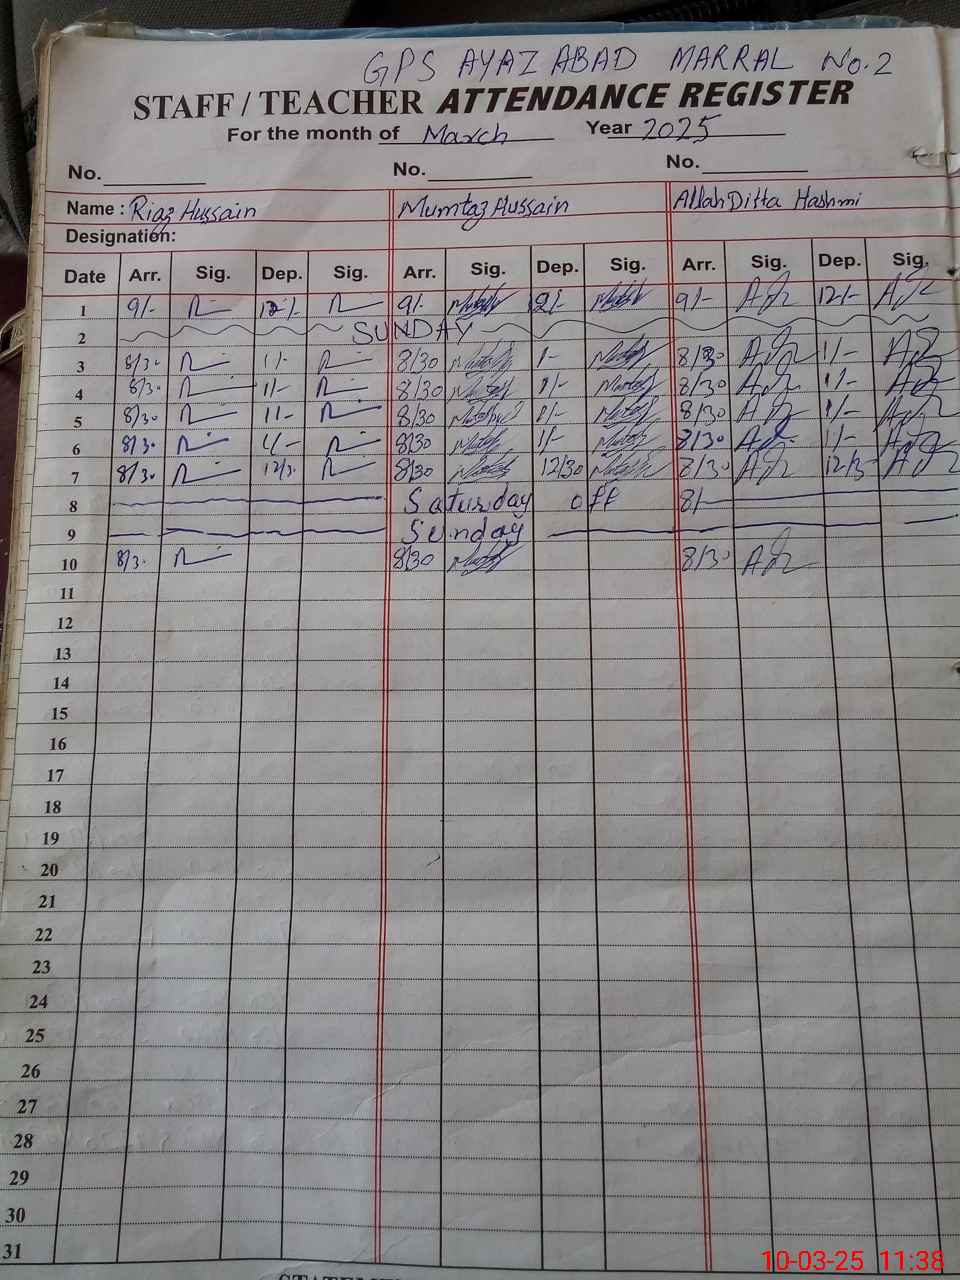 GPS AYAZ ABAD MARRAL No. 2
STAFF / TEACHER ATTENDANCE REGISTER
For the month of March Year 2025
No. No. No.
Name : Riaz Hussain Mumtaz Hussain Allah Ditta Hashmi
Designation:
Date Arr. Sig. Dep. Sig. Arr. Sig. Dep. Sig. Arr. Sig. Dep. Sig.
1 9/- 12/- 9/- 12/- 9/- 12/-
2 SUNDAY
3 8/30 1/- 8/30 1/- 8/30 1/-
4 8/30 1/- 8/30 1/- 8/30 1/-
5 8/30 1/- 8/30 1/- 8/30 1/-
6 8/30 1/- 8/30 1/- 8/30 1/-
7 8/30 12/3. 8/30 12/30 8/30 12/3-
8 Saturday off 8/-
9 Sunday
10 8/3. 8/30 8/30
11
12
13
14
15
16
17
18
19
20
21
22
23
24
25
26
27
28
29
30
31
10-03-25 11:38